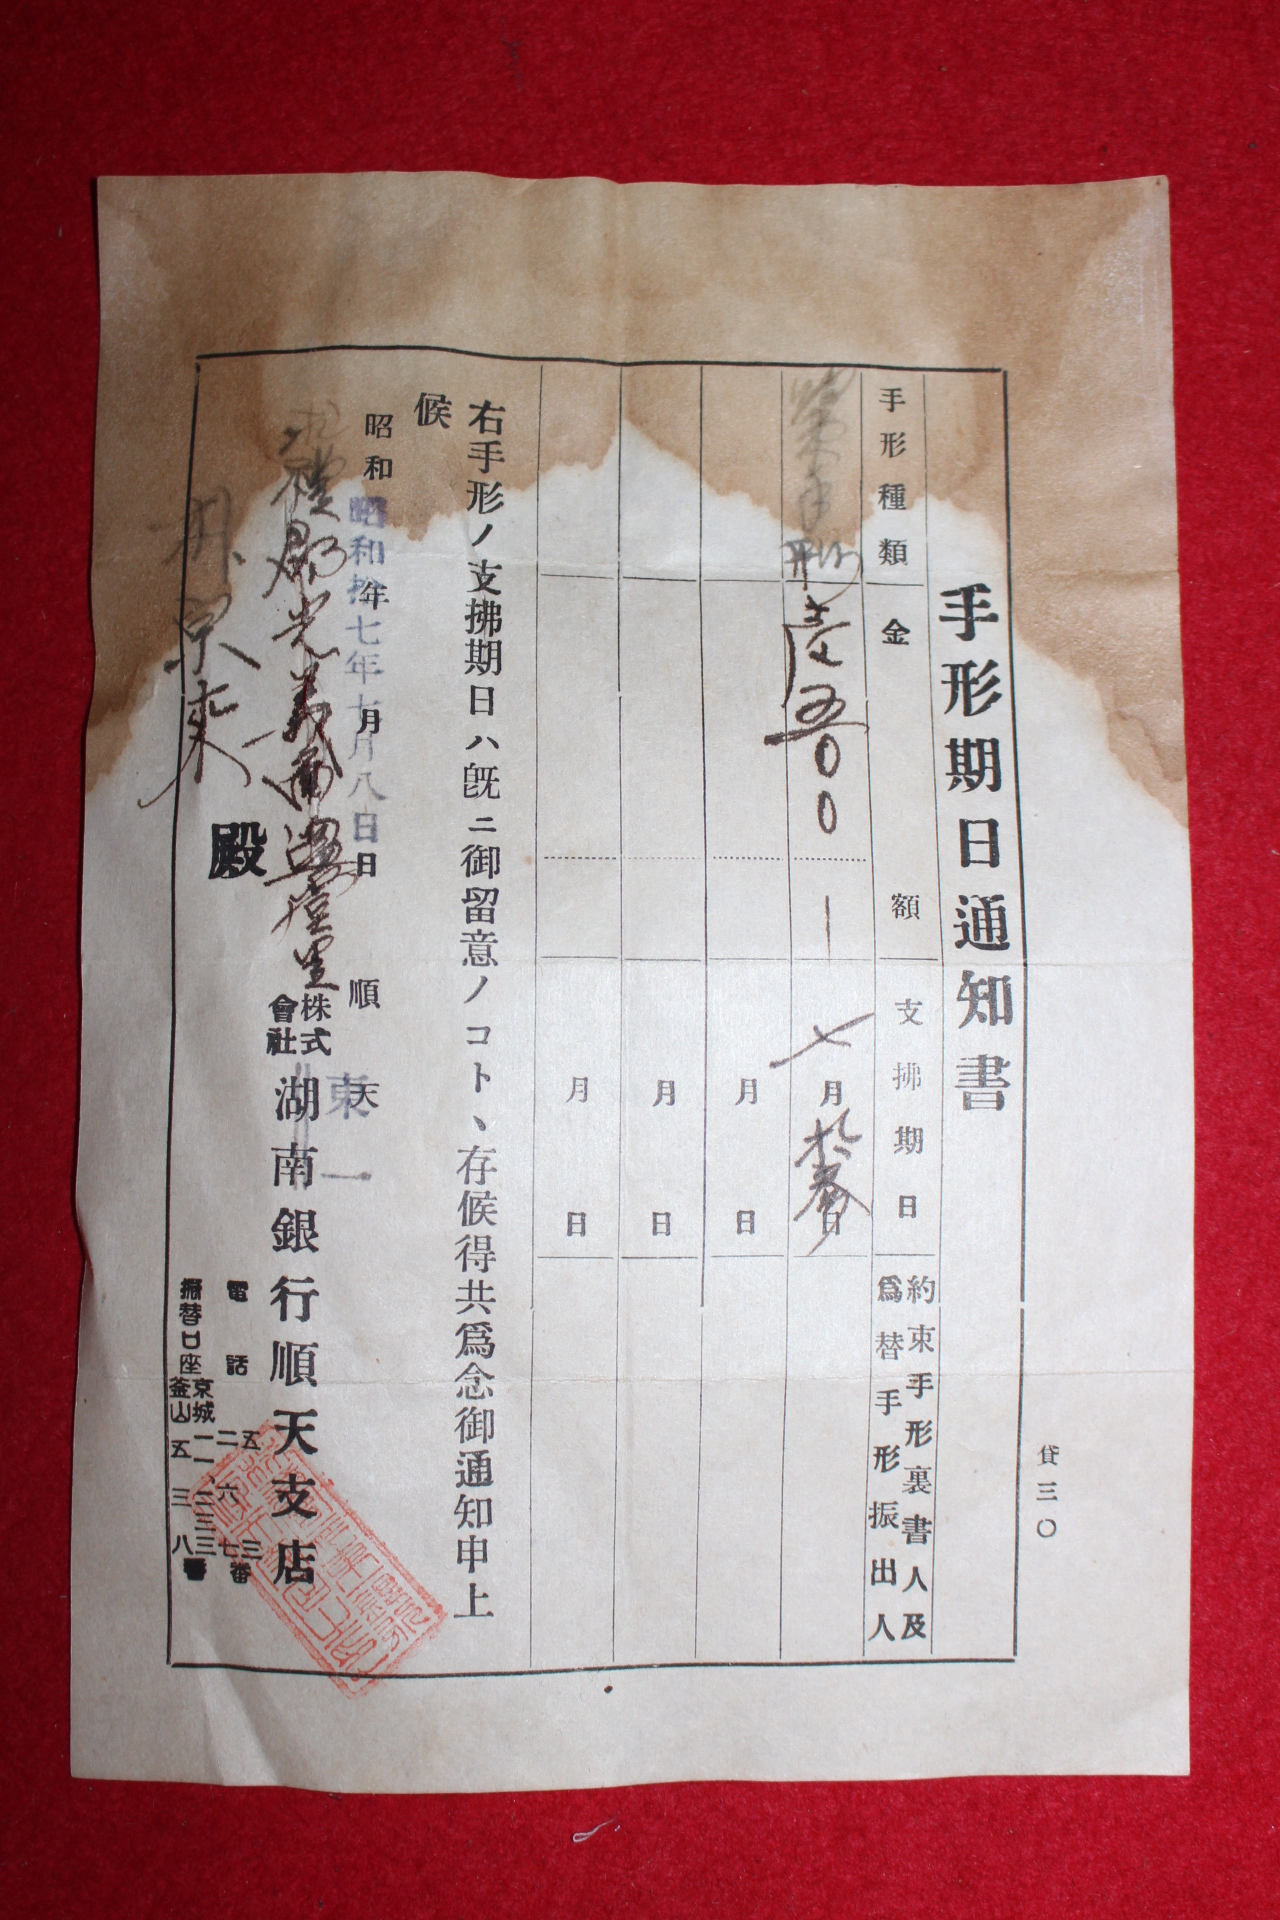 貸三〇
手形期日通知書
手形種類
金額
支拂期日
約束手形裏書人及
爲替手形振出人
約束手形
壹五00
七月
月日
月日
月日
右手形ノ支拂期日ハ既ニ御留意ノコトヽ存候得共爲念御通知申上
候
昭和 年 月 日
昭和拾七年七月八日
順天
東一
株式
會社
湖南銀行順天支店
禮郡光義面
里
殿
電話
五三
二六七番
振替口座
京城一一、二三三
釜山五三八番